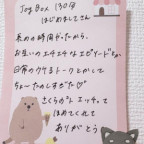 Joy Box 130分
はじめましてさん
長めの時間だったから、
お互いのエチエチなエピソードや
日常のウケるトークとかして
ちょーたのしすぎた♡
さくらが エッチって
ほめてくれて
ありがとう